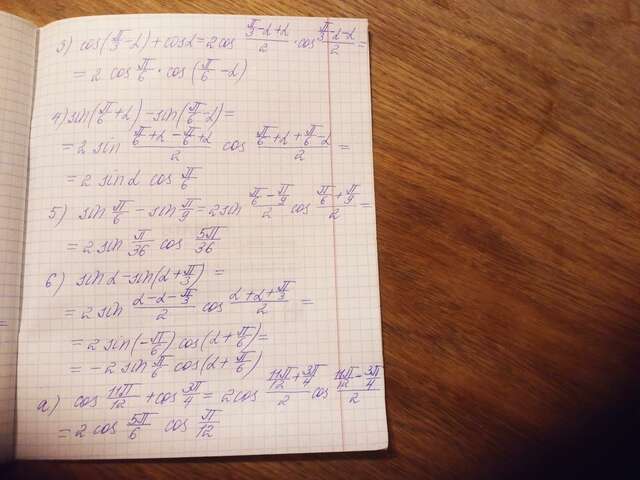 3) cos(π/3-α)+cosα=2cos (π/3-α+α)/2 · cos (π/3-α-α)/2 =
= 2 cos π/6 · cos(π/6 -α)
4) sin(π/6+α) -sin(π/6-α)=
= 2 sin (π/6+α-π/6+α)/2 cos (π/6+α+π/6-α)/2 =
= 2 sinα cos π/6
5) sin π/6 - sin π/9 = 2sin (π/6-π/9)/2 cos (π/6+π/9)/2 =
= 2 sin π/36 cos 5π/36
6) sinα-sin(α+π/3) =
= 2 sin (α-α-π/3)/2 cos (α+α+π/3)/2 =
= 2 sin(-π/6) cos(α+π/6)=
= -2 sin π/6 cos(α+π/6)
а) cos 11π/12 + cos 3π/4 = 2cos (11π/12+3π/4)/2 cos (11π/12-3π/4)/2
= 2 cos 5π/6 cos π/12